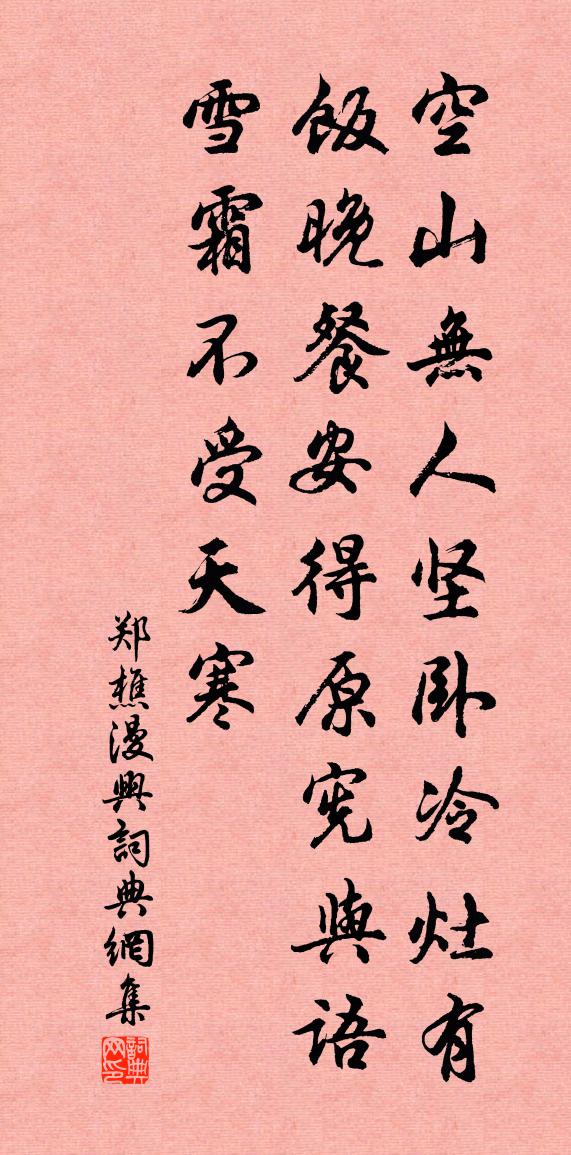 空山無人坚卧冷灶有
飯晚餐安得原宪與语
雪霜不受天寒
郑樵漫興詞典網集
詞典网印